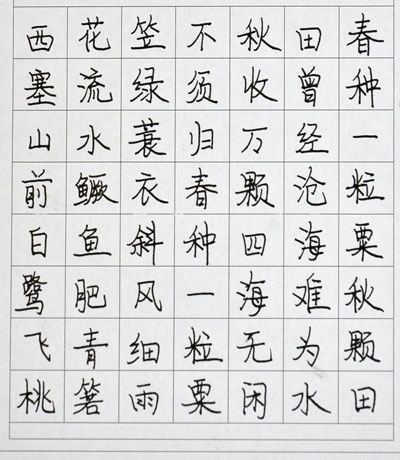 西塞山前白鹭飞桃
花流水鳜鱼肥青箬
笠绿蓑衣斜风细雨
不须归春种一粒粟
秋收万颗四海无闲
田曾经沧海难为水
春种一粒粟秋颗田